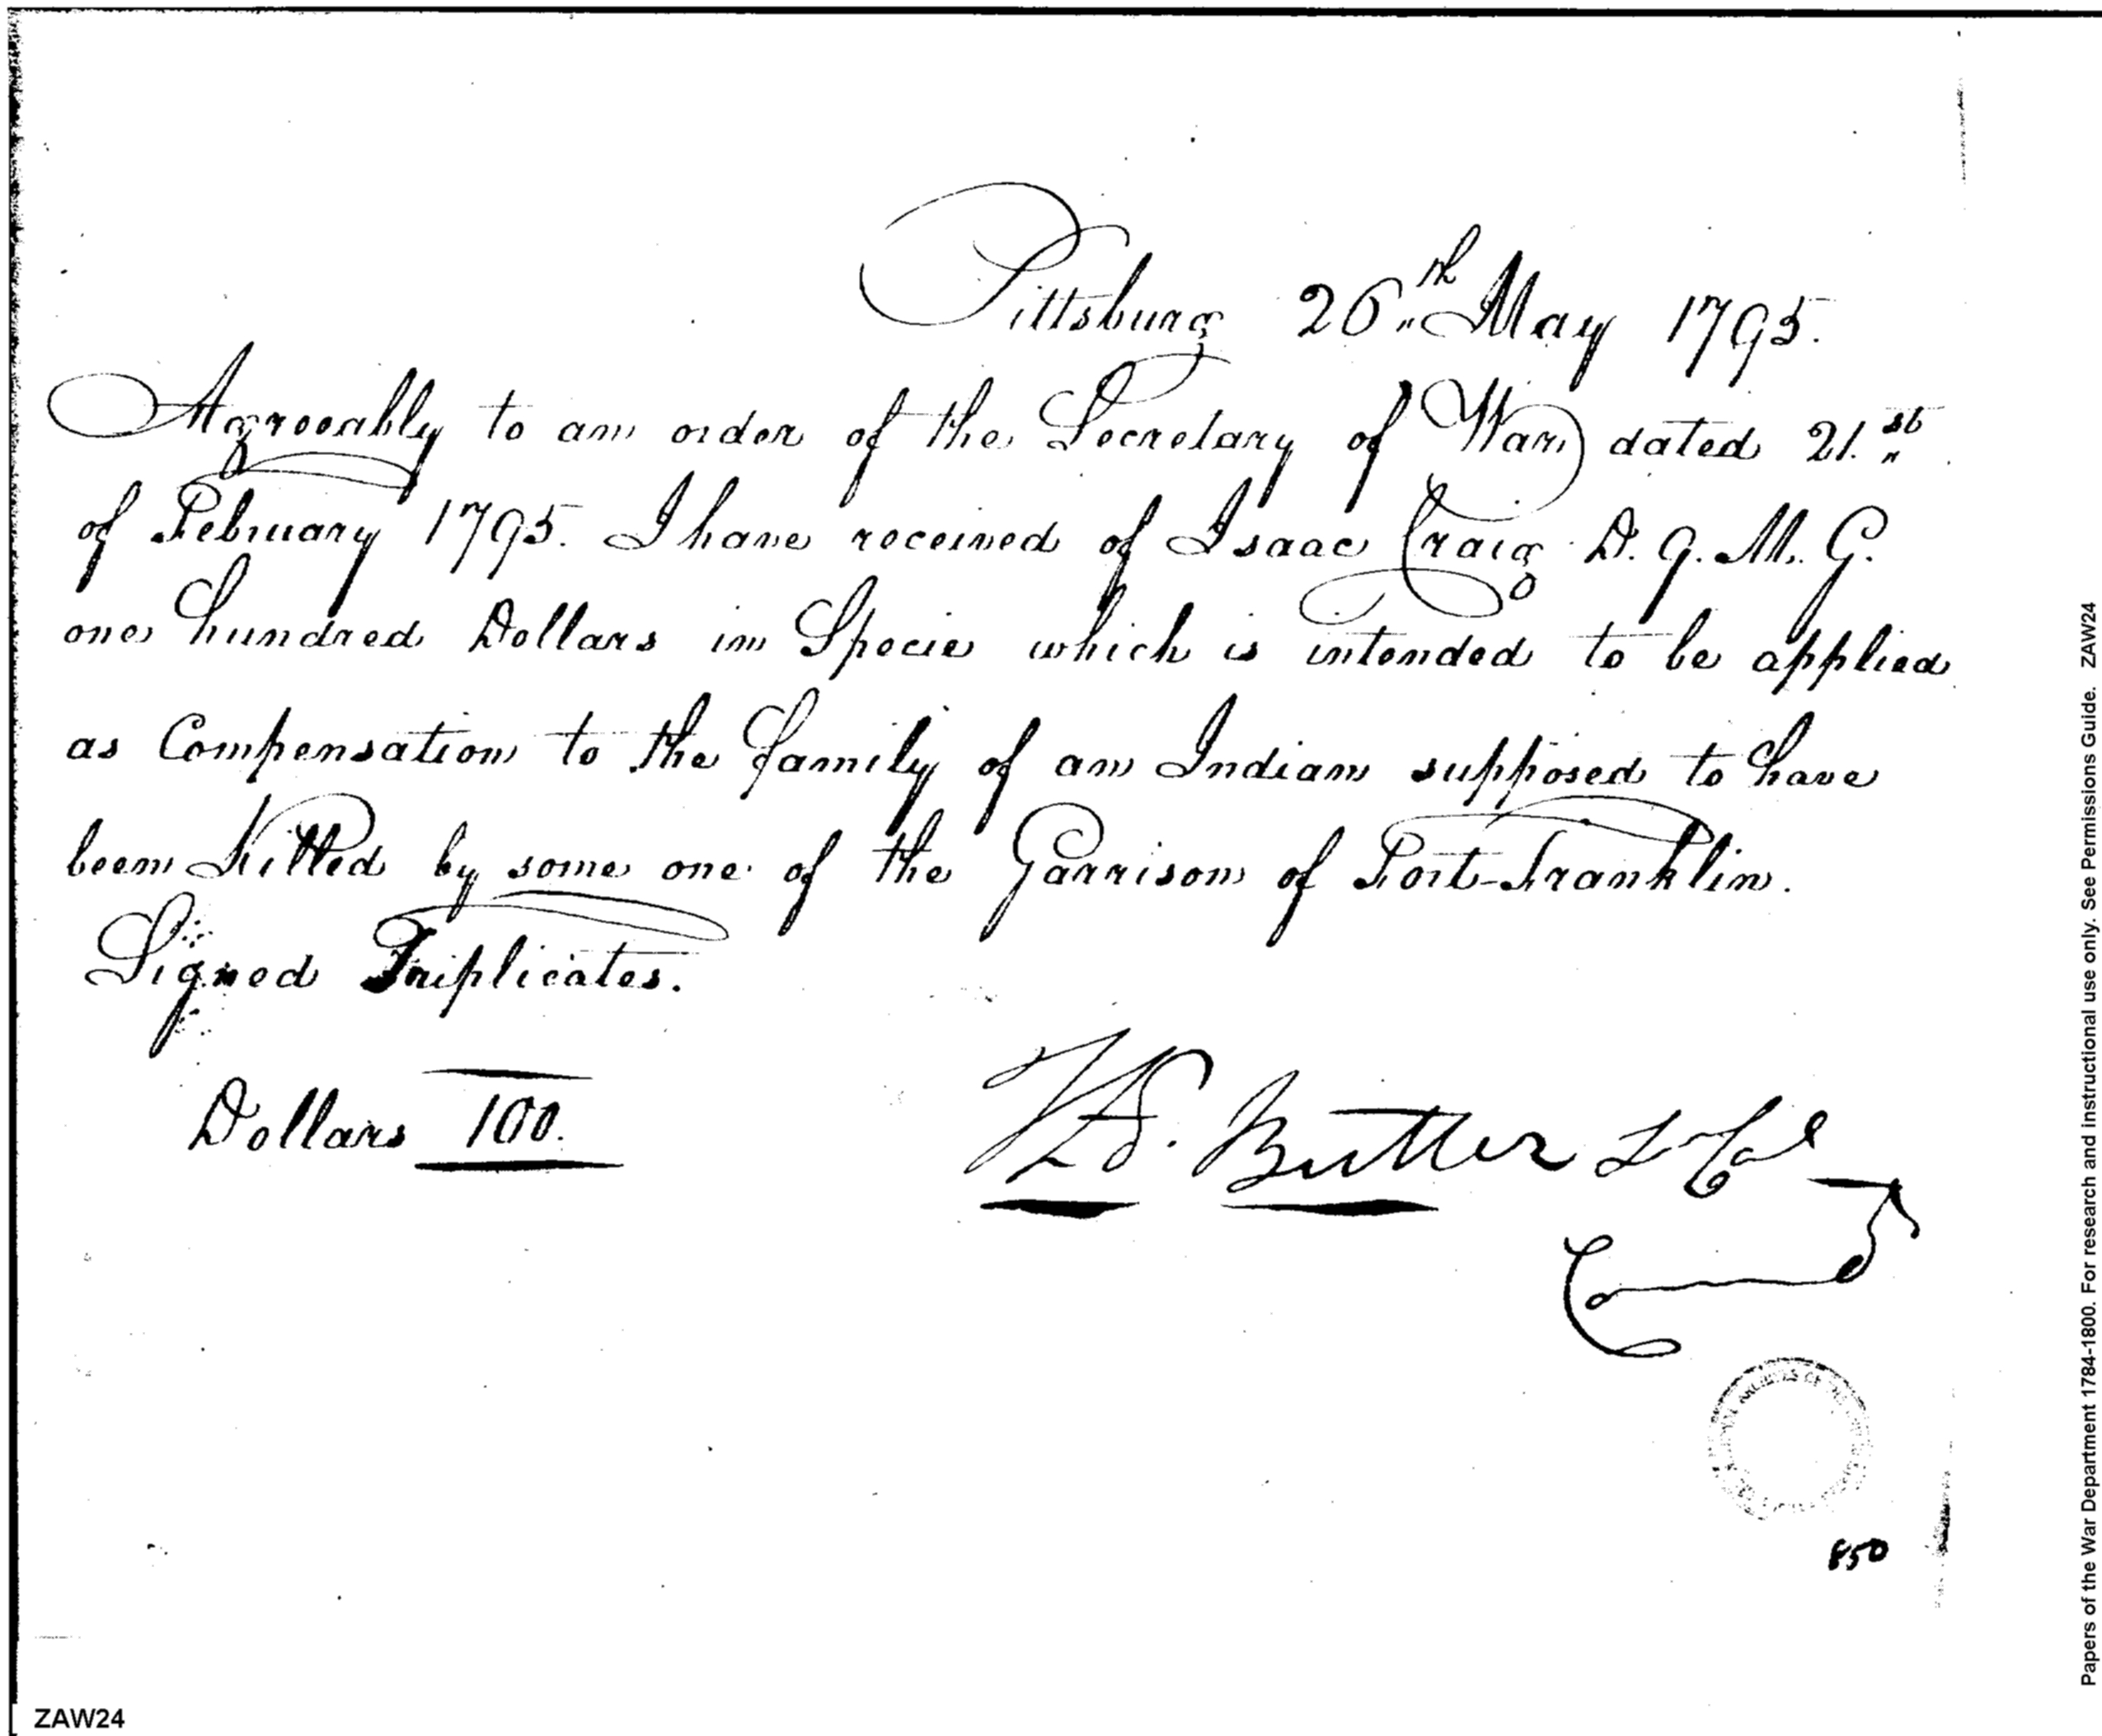 Pittsburg 26th May 1795.
Agreeably to an order of the Secretary of War dated 21.st
of February 1795. I have received of Isaac Craig D. Q. M. G.
one hundred Dollars in Specie which is intended to be applied
as Compensation to the family of an Indian supposed to have
been Killed by some one of the Garrison of Fort-Franklin.
Signed Triplicates.
Dollars 100.
Butler Lt Col
850
ZAW24
Papers of the War Department 1784-1800. For research and instructional use only. See Permissions Guide. ZAW24